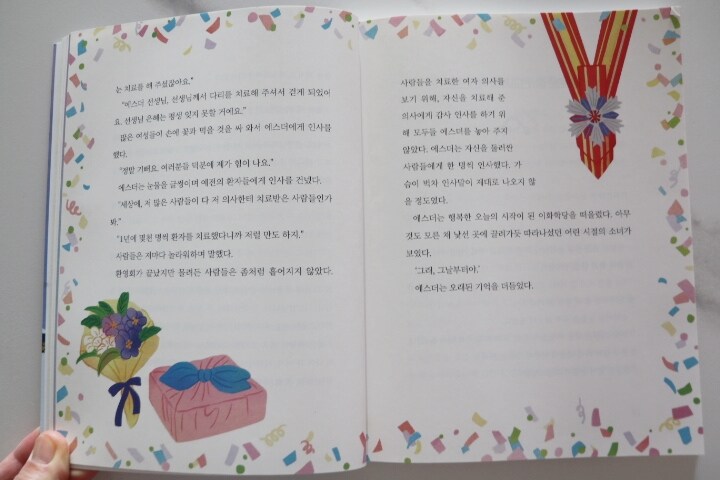 는 치료를 해 주셨잖아요."
"에스더 선생님, 선생님께서 다리를 치료해 주셔서 걷게 되었어
요. 선생님 은혜는 평생 잊지 못할 거예요."
많은 여성들이 손에 꽃과 먹을 것을 싸 와서 에스더에게 인사를
했다.
"정말 기뻐요. 여러분들 덕분에 제가 힘이 나요."
에스더는 눈물을 글썽이며 예전의 환자들에게 인사를 건넸다.
"세상에, 저 많은 사람들이 다 저 의사한테 치료받은 사람들인가
봐."
"1년에 몇천 명씩 환자를 치료했다니까 저럴 만도 하지."
사람들은 저마다 놀라워하며 말했다.
환영회가 끝났지만 몰려든 사람들은 좀처럼 흩어지지 않았다.
사람들을 치료한 여자 의사를
보기 위해, 자신을 치료해 준
의사에게 감사 인사를 하기 위
해 모두들 에스더를 놓아 주지
않았다. 에스더는 자신을 둘러싼
사람들에게 한 명씩 인사했다. 가
슴이 벅차 인사말이 제대로 나오지 않
을 정도였다.
에스더는 행복한 오늘의 시작이 된 이화학당을 떠올렸다. 아무
것도 모른 채 낯선 곳에 끌려가듯 따라나섰던 어린 시절의 소녀가
보였다.
'그래, 그날부터야.'
에스더는 오래된 기억을 더듬었다.